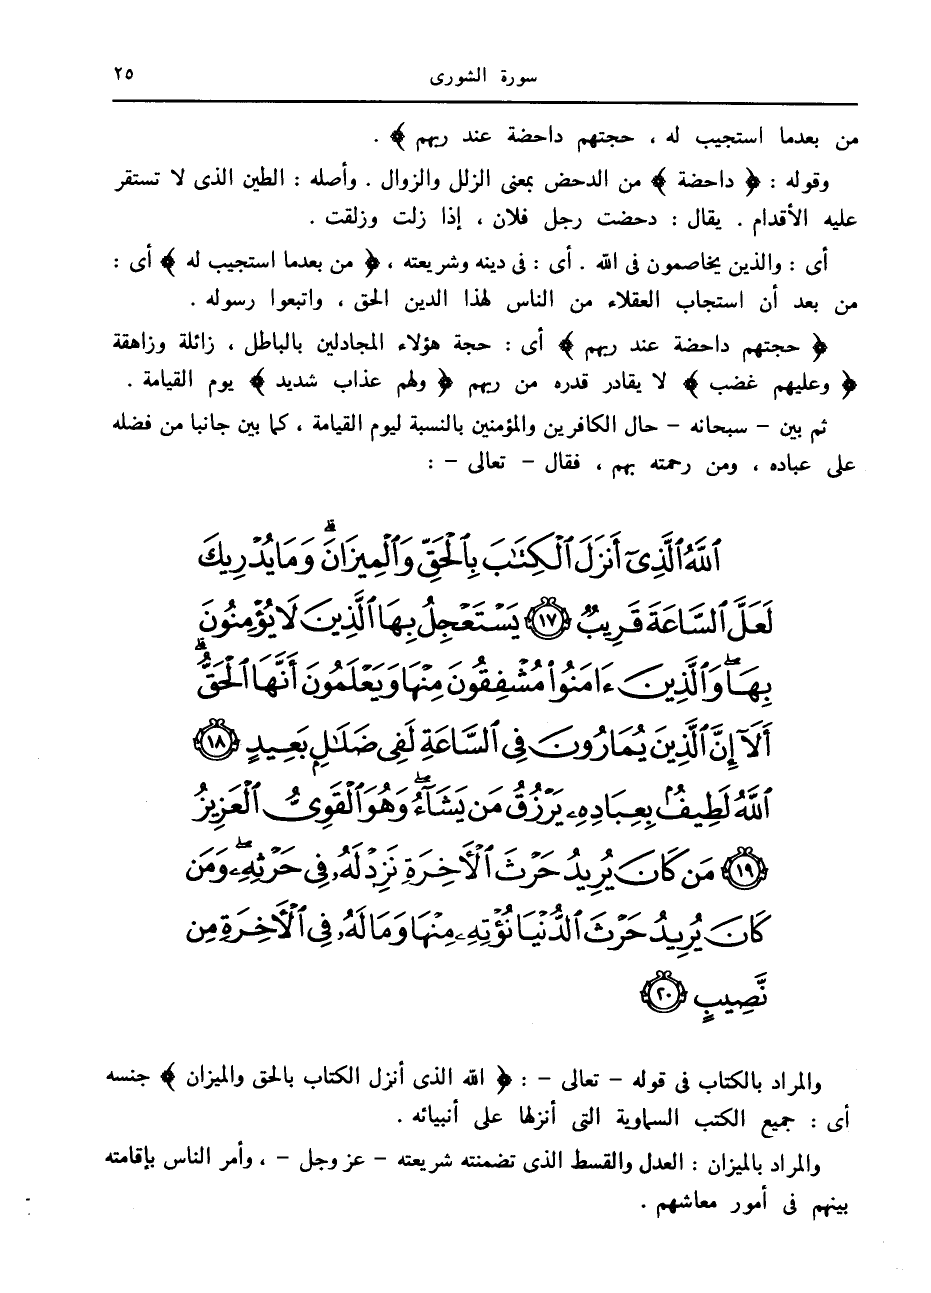 سورة الشورى ٢٥
من بعدما استجيب له ، حجتهم داحضة عند ربهم ﴾ .
وقوله : ﴿ داحضة ﴾ من الدحض بمعنى الزلل والزوال . وأصله : الطين الذى لا تستقر
عليه الأقدام . يقال : دحضت رجل فلان ، إذا زلت وزلقت .
أى : والذين يخاصمون فى الله . أى : فى دينه وشريعته ، ﴿ من بعدما استجيب له ﴾ أى :
من بعد أن استجاب العقلاء من الناس لهذا الدين الحق ، واتبعوا رسوله .
﴿ حجتهم داحضة عند ربهم ﴾ أى : حجة هؤلاء المجادلين بالباطل ، زائلة وزاهقة
﴿ وعليهم غضب ﴾ لا يقادر قدره من ربهم ﴿ ولهم عذاب شديد ﴾ يوم القيامة .
ثم بين – سبحانه – حال الكافرين والمؤمنين بالنسبة ليوم القيامة ، كما بين جانبا من فضله
على عباده ، ومن رحمته بهم ، فقال – تعالى – :
ٱللَّهُ ٱلَّذِىٓ أَنزَلَ ٱلْكِتَٰبَ بِٱلْحَقِّ وَٱلْمِيزَانَ ۗ وَمَا يُدْرِيكَ
لَعَلَّ ٱلسَّاعَةَ قَرِيبٌ ﴿١٧﴾ يَسْتَعْجِلُ بِهَا ٱلَّذِينَ لَا يُؤْمِنُونَ
بِهَا ۖ وَٱلَّذِينَ ءَامَنُوا۟ مُشْفِقُونَ مِنْهَا وَيَعْلَمُونَ أَنَّهَا ٱلْحَقُّ ۗ
أَلَآ إِنَّ ٱلَّذِينَ يُمَارُونَ فِى ٱلسَّاعَةِ لَفِى ضَلَٰلٍۭ بَعِيدٍ ﴿١٨﴾
ٱللَّهُ لَطِيفٌۢ بِعِبَادِهِۦ يَرْزُقُ مَن يَشَآءُ ۖ وَهُوَ ٱلْقَوِىُّ ٱلْعَزِيزُ
﴿١٩﴾ مَن كَانَ يُرِيدُ حَرْثَ ٱلْـَٔاخِرَةِ نَزِدْ لَهُۥ فِى حَرْثِهِۦ ۖ وَمَن
كَانَ يُرِيدُ حَرْثَ ٱلدُّنْيَا نُؤْتِهِۦ مِنْهَا وَمَا لَهُۥ فِى ٱلْـَٔاخِرَةِ مِن
نَّصِيبٍ ﴿٢٠﴾
والمراد بالكتاب فى قوله – تعالى – : ﴿ الله الذى أنزل الكتاب بالحق والميزان ﴾ جنسه
أى : جميع الكتب السماوية التى أنزلها على أنبيائه .
والمراد بالميزان : العدل والقسط الذى تضمنته شريعته – عز وجل – ، وأمر الناس بإقامته
بينهم فى أمور معاشهم .